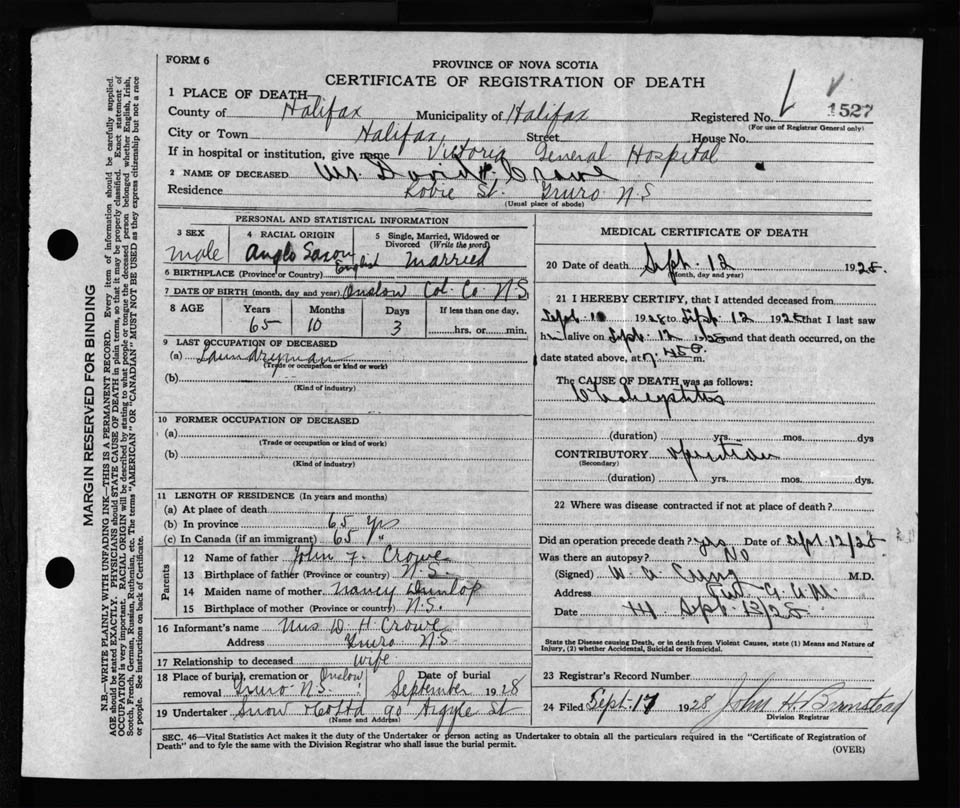 FORM 6
PROVINCE OF NOVA SCOTIA
CERTIFICATE OF REGISTRATION OF DEATH
1 PLACE OF DEATH
County of Halifax Municipality of Halifax Registered No. 1527
(For use of Registrar General only)
City or Town Halifax Street House No.
If in hospital or institution, give name Victoria General Hospital
2 NAME OF DECEASED Mr. David H. Crowe
Residence Robie St. Truro N.S
(Usual place of abode)
PERSONAL AND STATISTICAL INFORMATION
3 SEX male
4 RACIAL ORIGIN Anglo Saxon English
5 Single, Married, Widowed or Divorced (Write the word) Married
6 BIRTHPLACE (Province or Country)
7 DATE OF BIRTH (month, day and year) Onslow Col. Co. N.S.
8 AGE Years 65 Months 10 Days 3 If less than one day. hrs. or min.
9 LAST OCCUPATION OF DECEASED
(a) Laundryman
(Trade or occupation or kind of work)
(b)
(Kind of industry)
10 FORMER OCCUPATION OF DECEASED
(a)
(Trade or occupation or kind of work)
(b)
(Kind of industry)
11 LENGTH OF RESIDENCE (In years and months)
(a) At place of death
(b) In province 65 Yrs
(c) In Canada (if an immigrant) 65 Y"
Parents
12 Name of father John F. Crowe
13 Birthplace of father (Province or country) N.S.
14 Maiden name of mother Nancy Dunlop
15 Birthplace of mother (Province or country) N.S.
16 Informant's name Mrs D. H. Crowe
Address Truro N.S
17 Relationship to deceased wife
18 Place of burial, cremation or removal Onslow Truro N.S. Date of burial September 1928
19 Undertaker Snow & Co Ltd 90 Argyle St
(Name and Address)
MEDICAL CERTIFICATE OF DEATH
20 Date of death Sept. 12 1928.
(Month, day and year)
21 I HEREBY CERTIFY, that I attended deceased from
Sept 1928 to Sept. 12 1928 that I last saw
him alive on Sept. 12 1928 and that death occurred, on the
date stated above, at 7.45 p m.
The CAUSE OF DEATH was as follows:
(duration) yrs. mos. dys
CONTRIBUTORY operation
(Secondary)
(duration) yrs. mos. dys.
22 Where was disease contracted if not at place of death?
Did an operation precede death? Yes Date of Sept. 12/28
Was there an autopsy? No
(Signed) W. A. M.D.
Address
Date Sept. 13/28
State the Disease causing Death, or in death from Violent Causes, state (1) Means and Nature of Injury, (2) whether Accidental, Suicidal or Homicidal.
23 Registrar's Record Number
24 Filed Sept. 17 1928 John H. Barnstead
Division Registrar
SEC. 46—Vital Statistics Act makes it the duty of the Undertaker or person acting as Undertaker to obtain all the particulars required in the "Certificate of Registration of
Death" and to fyle the same with the Division Registrar who shall issue the burial permit.
(OVER)
MARGIN RESERVED FOR BINDING
N.B.—WRITE PLAINLY WITH UNFADING INK—THIS IS A PERMANENT RECORD. Every item of information should be carefully supplied.
AGE should be stated EXACTLY. PHYSICIANS should STATE CAUSE OF DEATH in plain terms, so that it may be properly classified. Exact statement of
OCCUPATION is very important. RACIAL ORIGIN will be described by stating to what people or tongue the deceased person belonged whether English, Irish,
Scotch, French, German, Russian, Ruthenian, etc. The terms "AMERICAN" OR "CANADIAN" MUST NOT BE USED as they express citizenship but not a race
or people. See instructions on back of Certificate.